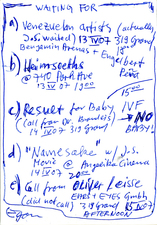 WAITING FOR
a) Venezuelan artists (actually
JoS. waited) 13 IV 07 319 Grand
Benjamin Arenas + Engelbert
b) Heimseeths
@ 740 Park Ave
13 IV 07 1900
c) Result for Baby IVF
(call from Dr. 
14 IV 07 319 Grand
→ NO
BABY!
d) "Namesake" w/ JoS.
Movie @ Angelika Cinema
14 IV 07 2000
e) Call from OLIVER Leisse
(did not call) EARS + EYES GmbH
319 Grand 15 IV 07
AFTERNOON